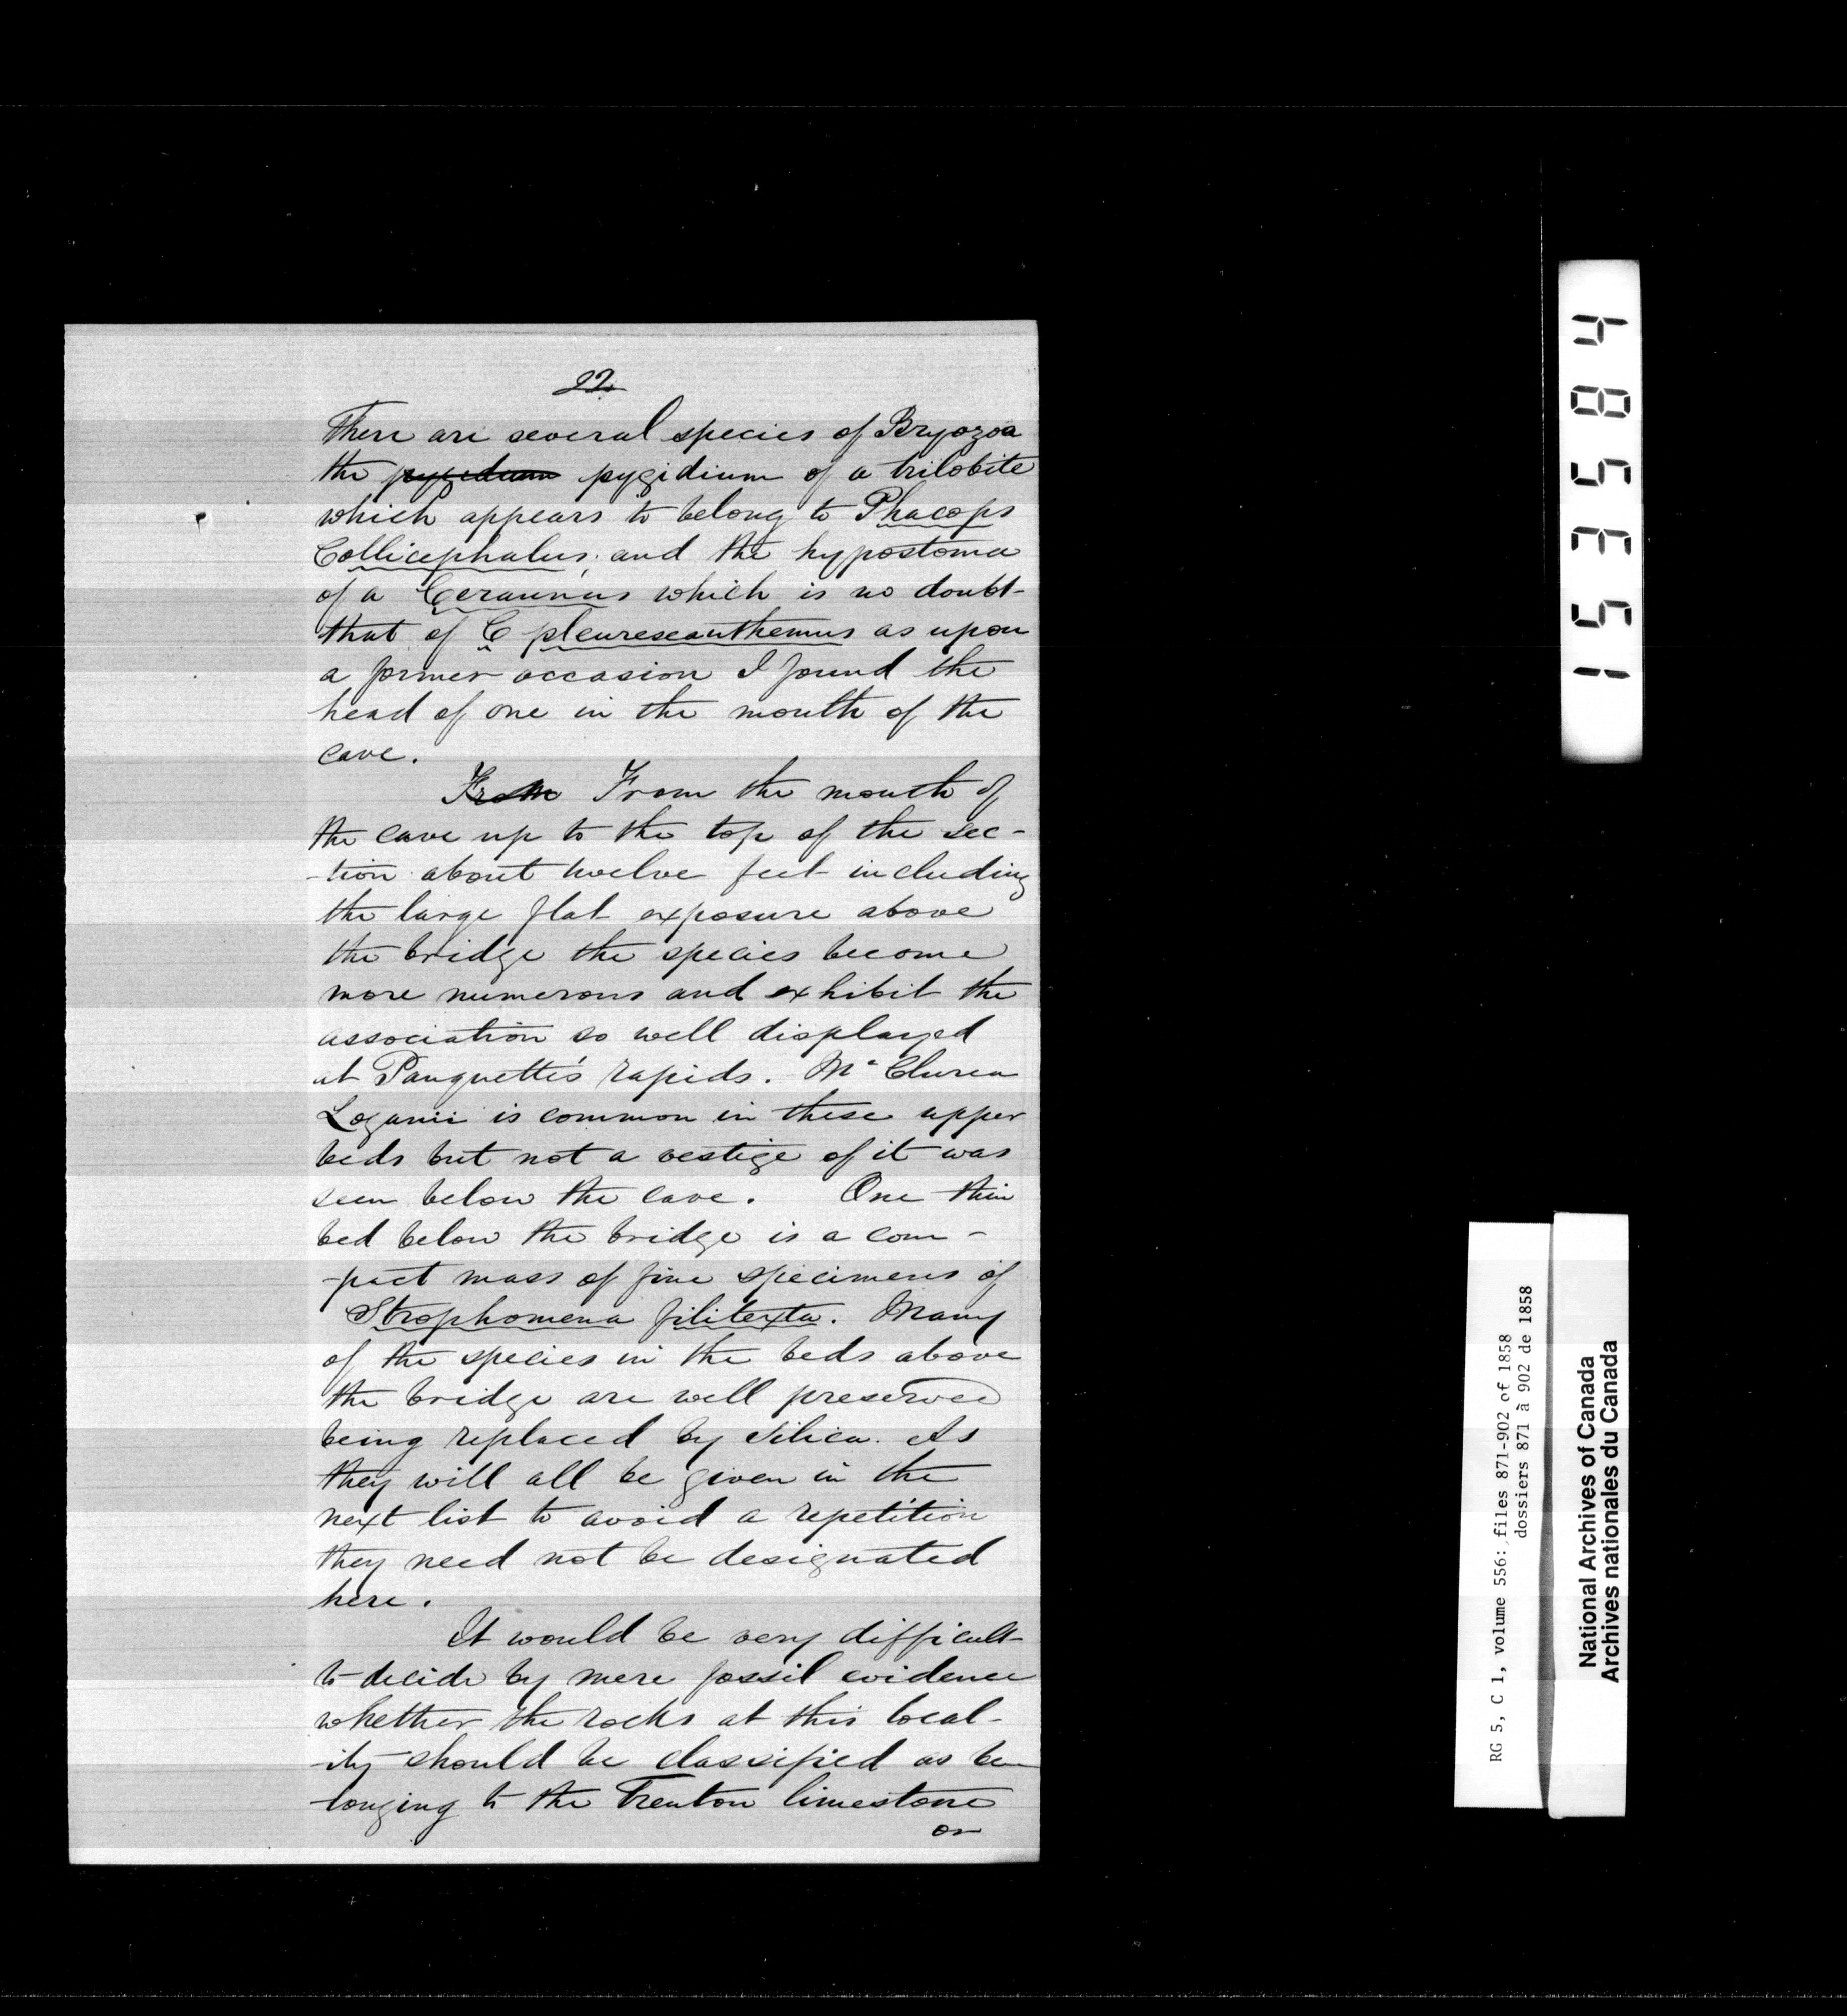 22
There are several species of Bryozoa
the pygidium pygidium of a trilobite
which appears to belong to Phacops
Collicephalus, and the hypostoma
of a Ceraurus which is no doubt
that of C pleurexanthemus as upon
a former occasion I found the
head of one in the mouth of the
cave.
From From the mouth of
the cave up to the top of the sec-
-tion about twelve feet including
the large flat exposure above
the bridge the species become
more numerous and exhibit the
association so well displayed
at Pauquette's rapids. Mc Clurea
Loganii is common in these upper
beds but not a vestige of it was
seen below the cave. One thin
bed below the bridge is a com-
-pact mass of fine specimens of
Strophomena filitexta. Many
of the species in the beds above
the bridge are well preserved
being replaced by silica. As
they will all be given in the
next list to avoid a repetition
they need not be designated
here.
It would be very difficult
to decide by mere fossil evidence
whether the rocks at this local-
-ity should be classified as be
-longing to the Trenton limestone
or
153584
RG 5, C 1, volume 556: files 871-902 of 1858
dossiers 871 à 902 de 1858
National Archives of Canada
Archives nationales du Canada